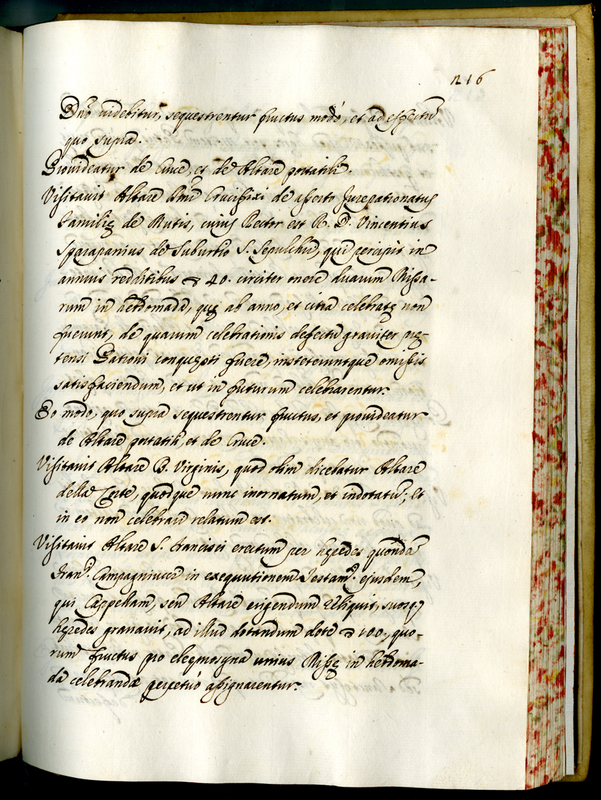 216
Dño videbitur, sequestrentur fructus modò, et ad effectũ
quo supra.
Provideatur de Cruce, et de Altare portatili.
Visitavit Altare Smi Crucifixi de asserto Jurepationatus
Familiæ de Rutis, cuius Rector est R. D. Vincentius
Sparapanius de Suburbio S. Sepulchri, qui percipit in
annuis redditibus 40. circiter onere duarum Missa-
rum in hebdomada, quæ ab anno, et citra celebratæ non
fuerunt, de quarum celebrationis defectu graviter præ-
tensi Patroni conquesti fuere, insteteruntque omissis
satisfaciendum, et ut in futurum celebrarentur.
Eo modo, quo supra sequestrentur fructus, et provideatur
de Altare portatili, et de Cruce.
Visitavit Altare B. Virginis, quod olim dicebatur Altare
della Corte, quodque nunc inornatum, et indotatũ, et
in eo non celebrari relatum est.
Visitavit Altare S. Francisci erectum per hæredes quondã
Fran. Campagninum in exequutionem Testam. eiusdem,
qui Cappellam, seu Altare erigendum reliquit, suosq;
hæredes gravavit, ad illud dotandum dote 100, quo-
rum fructus pro elegmosyna unius Missæ in hebdoma-
da celebrandæ perpetuò assignarentur.